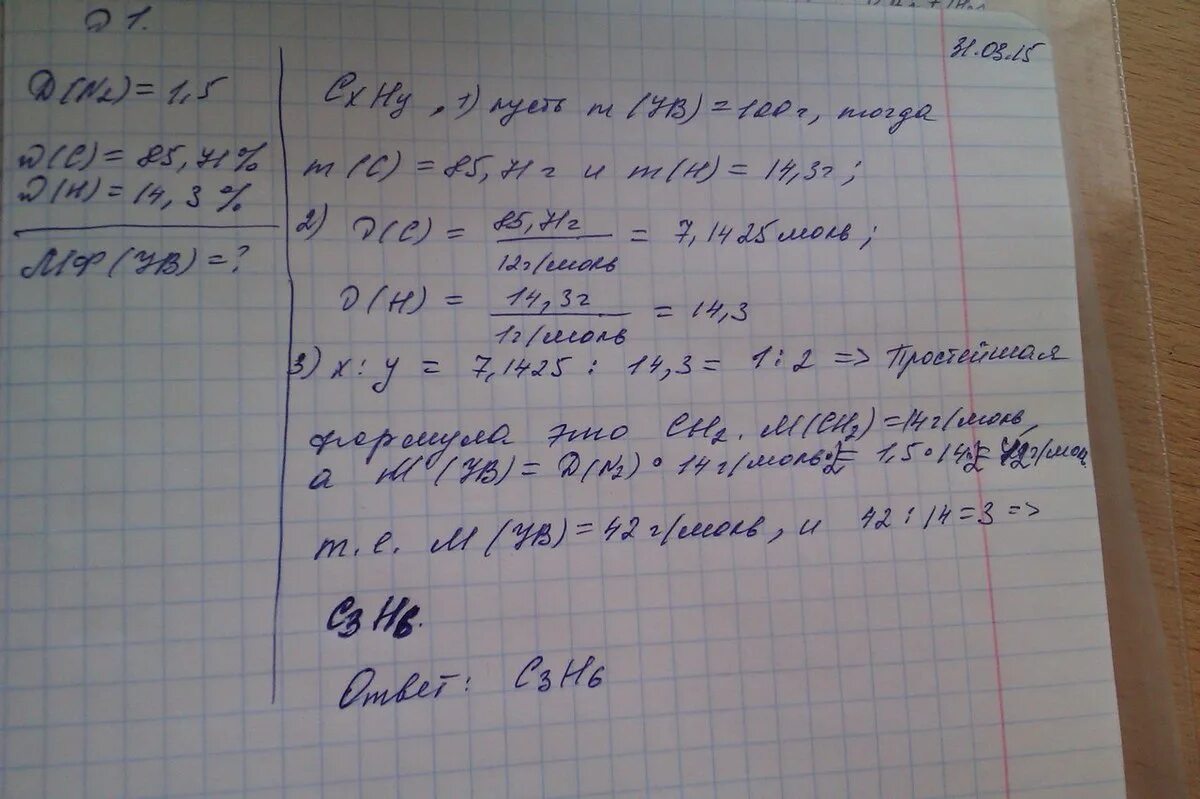 № 1.
31.03.15
D(N₂) = 1,5
ω(C) = 85,71%
ω(H) = 14,3%
МФ(УВ) = ?
CxHy, 1) пусть m(УВ) = 100г, тогда
m(C) = 85,71г и m(H) = 14,3г;
2) ν(C) = 85,71г / 12г/моль = 7,1425моль;
ν(H) = 14,3г / 1г/моль = 14,3
3) x : y = 7,1425 : 14,3 = 1 : 2 => Простейшая
формула это CH₂. M(CH₂) = 14г/моль,
а M(УВ) = D(N₂) • 14г/моль•2 = 1,5 • 14•2 = 42г/моль
т.е. M(УВ) = 42г/моль, и 42 : 14 = 3 =>
C₃H₆.
Ответ: C₃H₆